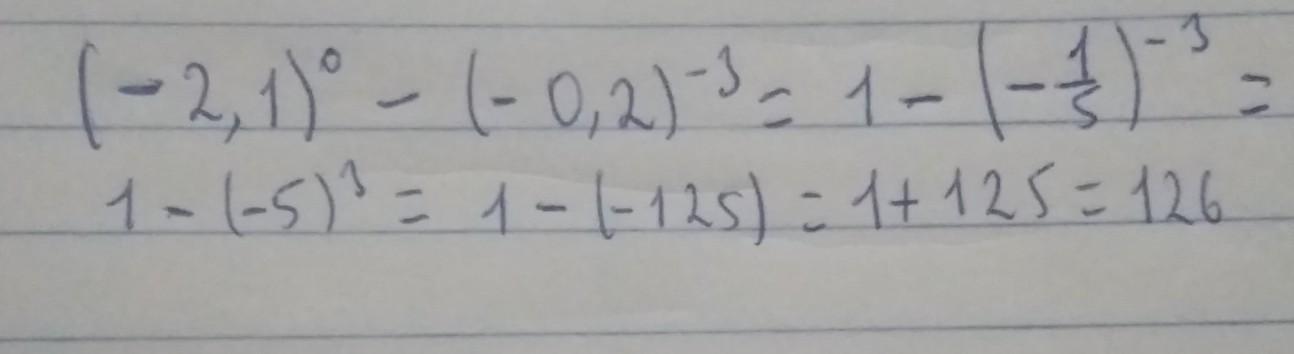 (-2,1)⁰ - (-0,2)⁻³ = 1 - (-1/5)⁻³ =
1 - (-5)³ = 1 - (-125) = 1 + 125 = 126